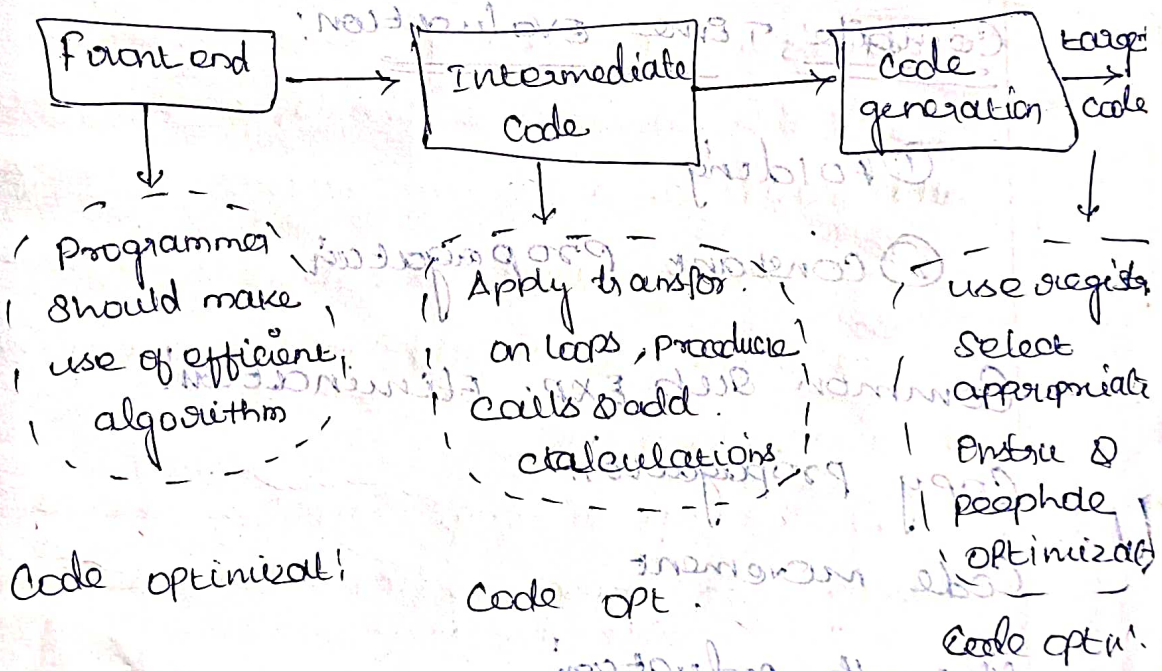 Front end
Intermediate
Code
Code
generation
target
code
Programmer
should make
use of efficient
algorithm
Apply transfor.
on loops, procedure
calls & add.
calculations
use registr
select
appropriate
instru &
peephole
optimizat
Code optimizat!
Code opt.
Code opti'.